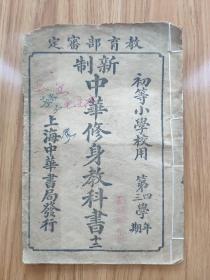 教育部審定
初等小學校用
第四學年
第三學期
新制
中華修身教科書
十二
上海中華書局發行